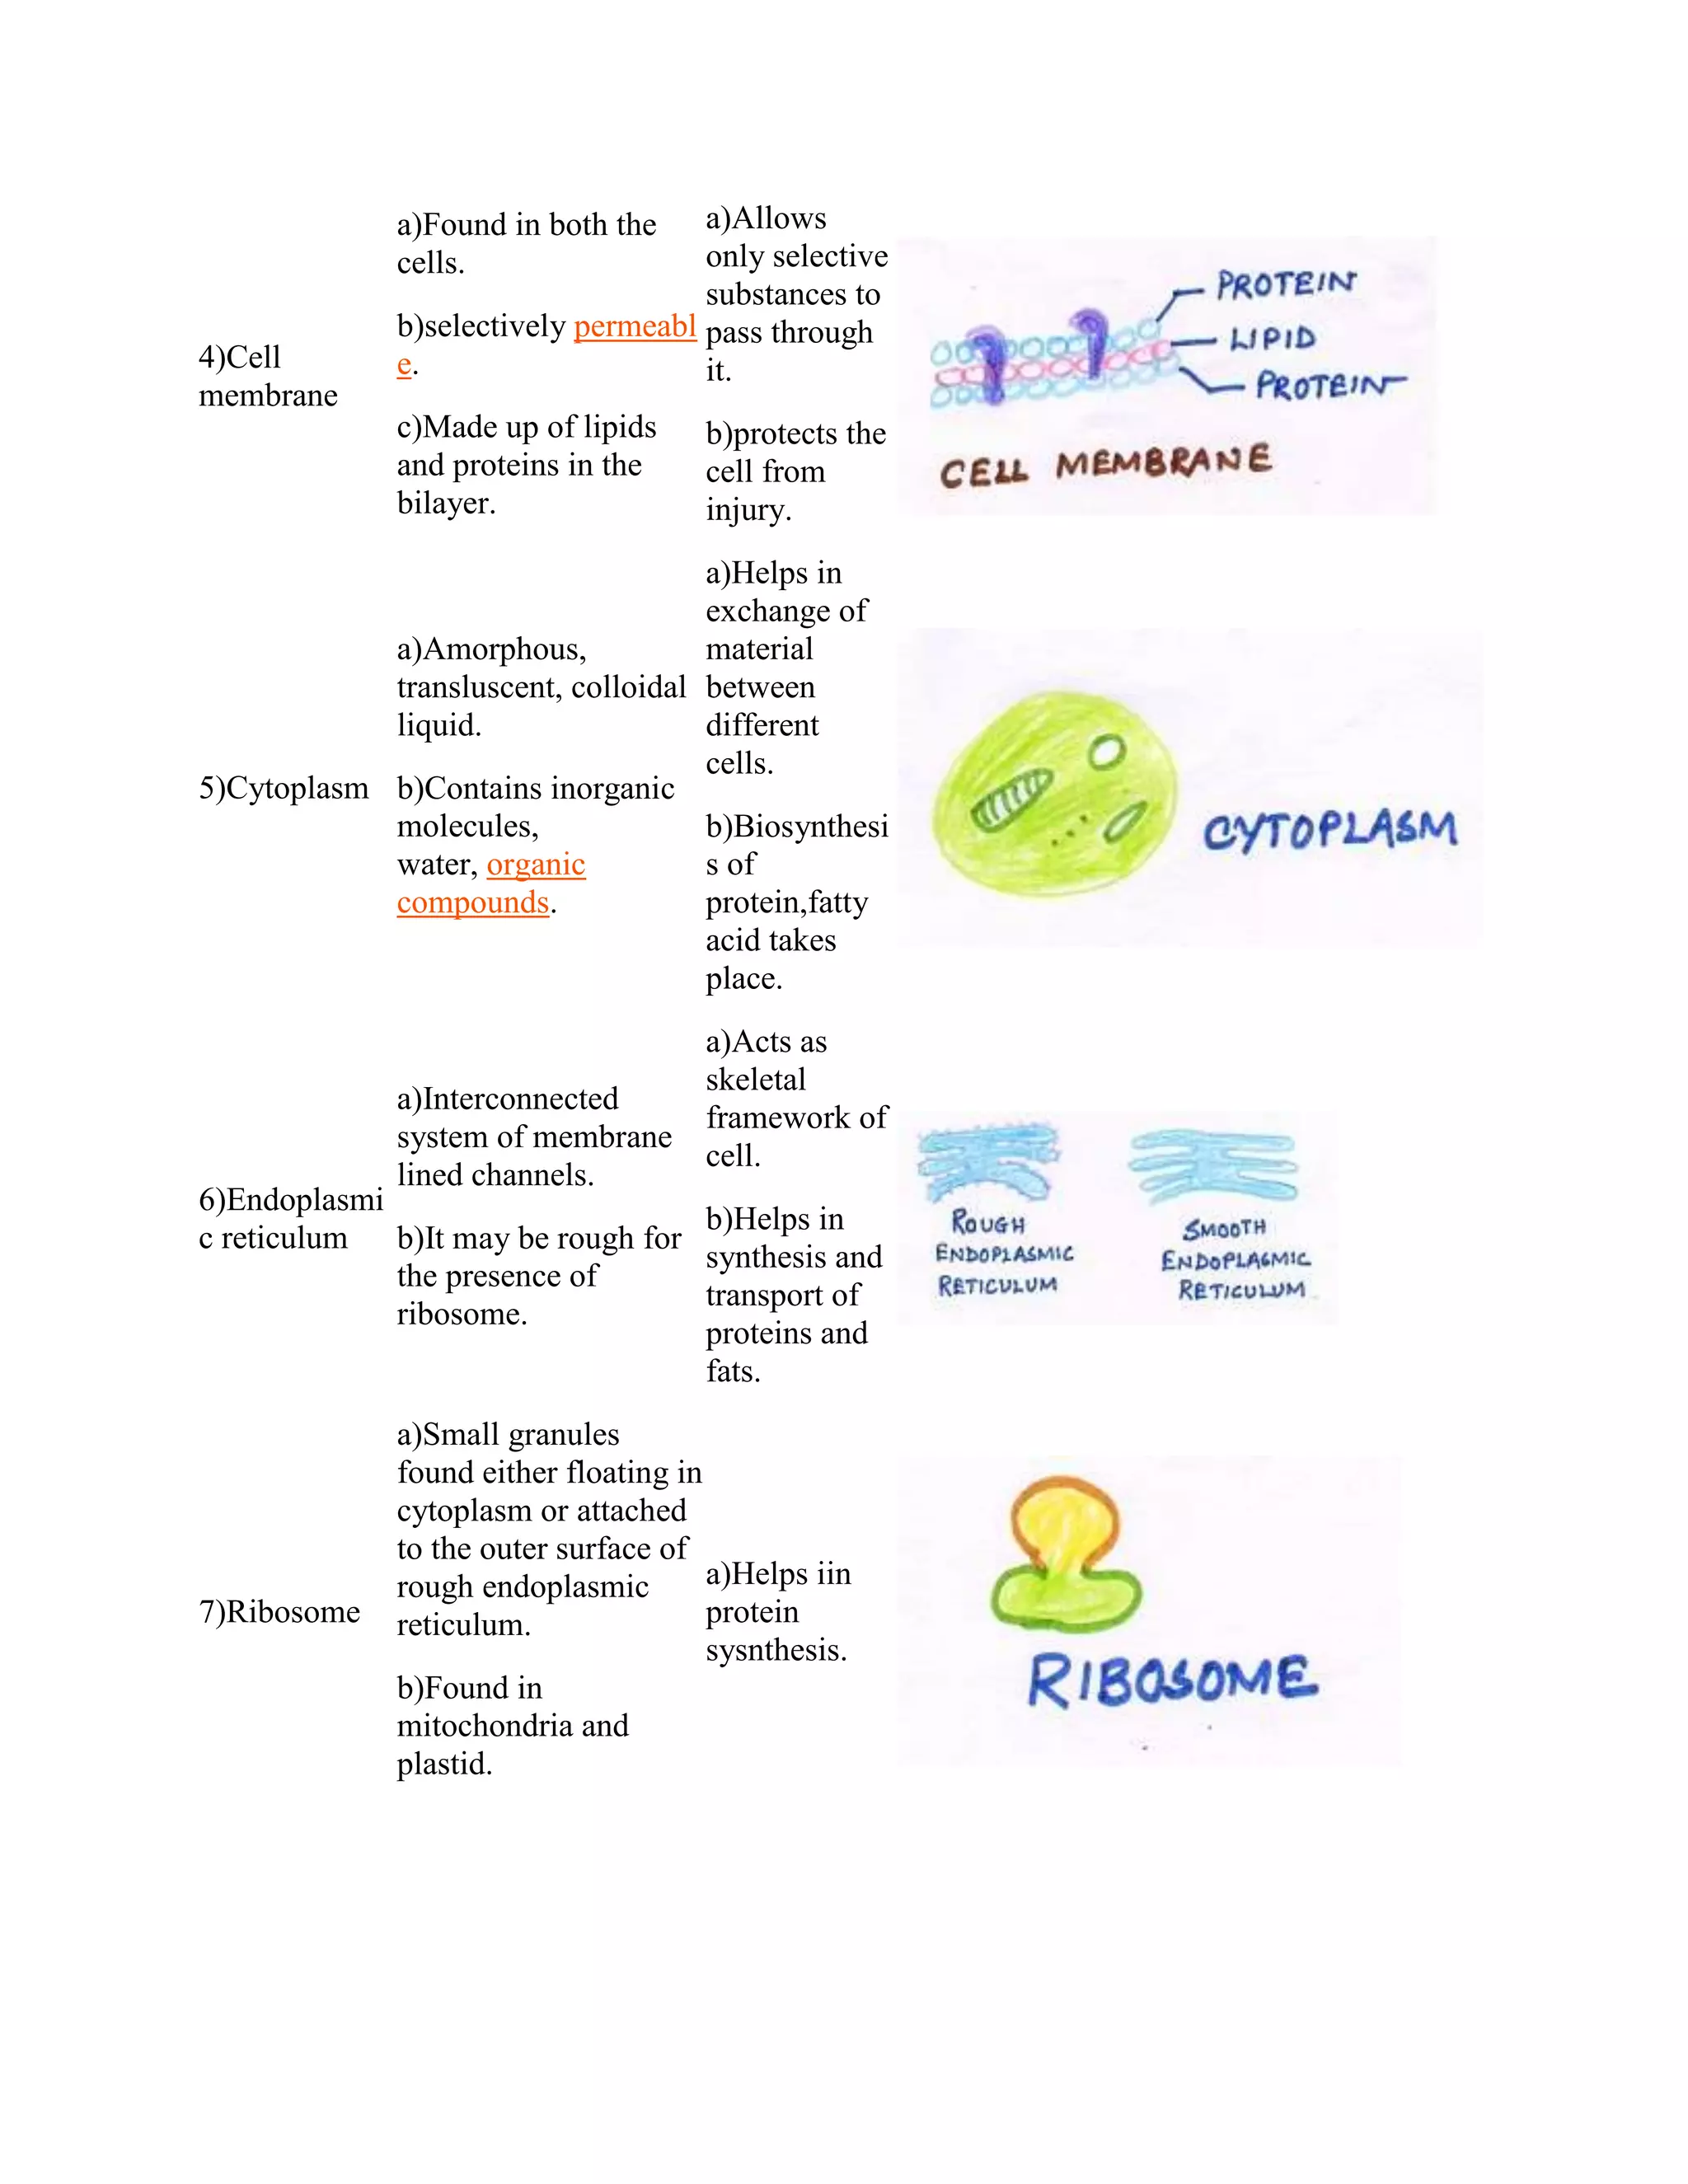 4)Cell
membrane
a)Found in both the
cells.
b)selectively permeabl
e.
c)Made up of lipids
and proteins in the
bilayer.
a)Allows
only selective
substances to
pass through
it.
b)protects the
cell from
injury.
PROTEIN
LIPID
PROTEIN
CELL MEMBRANE
5)Cytoplasm
a)Amorphous,
transluscent, colloidal
liquid.
b)Contains inorganic
molecules,
water, organic
compounds.
a)Helps in
exchange of
material
between
different
cells.
b)Biosynthesi
s of
protein,fatty
acid takes
place.
CYTOPLASM
6)Endoplasmi
c reticulum
a)Interconnected
system of membrane
lined channels.
b)It may be rough for
the presence of
ribosome.
a)Acts as
skeletal
framework of
cell.
b)Helps in
synthesis and
transport of
proteins and
fats.
ROUGH
ENDOPLASMIC
RETICULUM
SMOOTH
ENDOPLASMIC
RETICULUM
7)Ribosome
a)Small granules
found either floating in
cytoplasm or attached
to the outer surface of
rough endoplasmic
reticulum.
b)Found in
mitochondria and
plastid.
a)Helps iin
protein
sysnthesis.
RIBOSOME